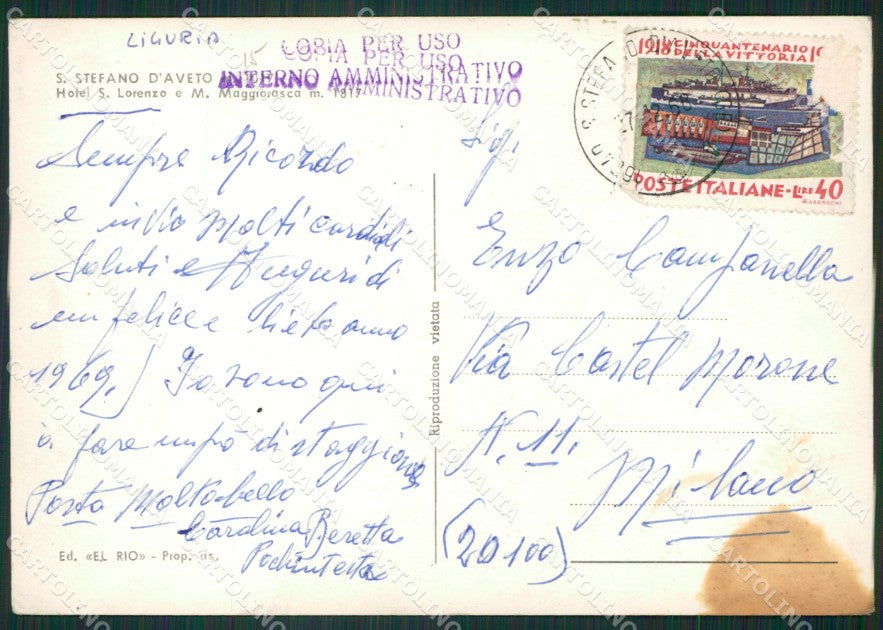 LIGURIA
15
COPIA PER USO
COPIA PER USO
INTERNO AMMINISTRATIVO
INTERNO AMMINISTRATIVO
S. STEFANO D'AVETO
Hotel S. Lorenzo e M. Maggiorasca m. 1817
Sempre Ricordo
e invio molti cordiali
Saluti e Auguri di
un felice e lieto anno
1969, Io sono qui
a fare un pò di staggione
Posto Molto bello
Carolina Beretta
Ed. «EL RIO» - Prop. ris.
Riproduzione vietata
1918 CINQUANTENARIO 19
DELLA VITTORIA
POSTE ITALIANE - LIRE 40
S. STEFANO D'AVETO
Sig.
Enzo Campanella
Via Castel Morone
N. 11.
Milano
(20100)
CARTOLINOMANIA